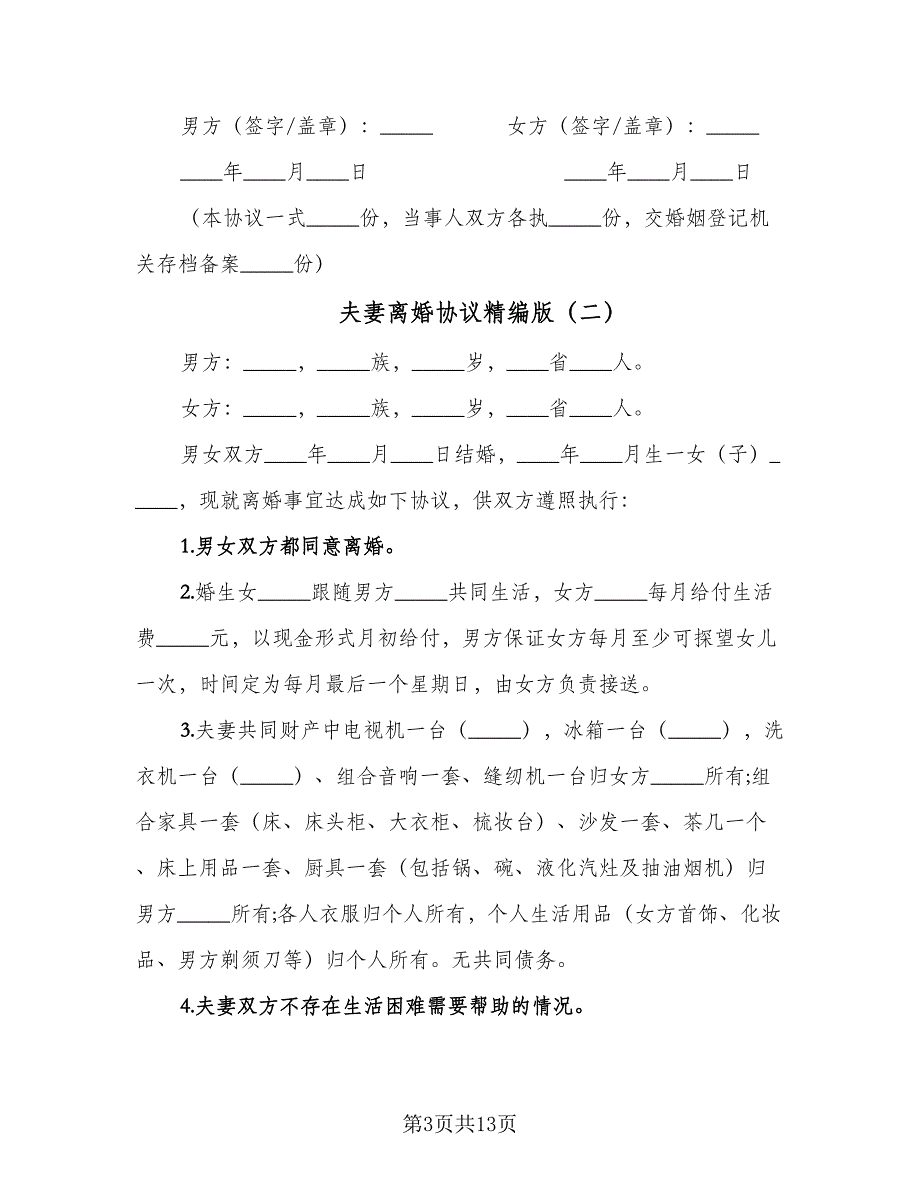 男方（签字/盖章）：_____ 女方（签字/盖章）：_____
____年____月____日 ____年____月____日
（本协议一式_____份，当事人双方各执_____份，交婚姻登记机
关存档备案_____份）
夫妻离婚协议精编版（二）
男方：_____，_____族，_____岁，____省____人。
女方：_____，_____族，_____岁，____省____人。
男女双方____年____月____日结婚，____年____月生一女（子）_
____，现就离婚事宜达成如下协议，供双方遵照执行：
1.男女双方都同意离婚。
2.婚生女_____跟随男方_____共同生活，女方_____每月给付生活
费_____元，以现金形式月初给付，男方保证女方每月至少可探望女儿
一次，时间定为每月最后一个星期日，由女方负责接送。
3.夫妻共同财产中电视机一台（_____），冰箱一台（_____），洗
衣机一台（_____）、组合音响一套、缝纫机一台归女方_____所有;组
合家具一套（床、床头柜、大衣柜、梳妆台）、沙发一套、茶几一个
、床上用品一套、厨具一套（包括锅、碗、液化汽灶及抽油烟机）归
男方_____所有;各人衣服归个人所有，个人生活用品（女方首饰、化妆
品、男方剃须刀等）归个人所有。无共同债务。
4.夫妻双方不存在生活困难需要帮助的情况。
第3页共13页